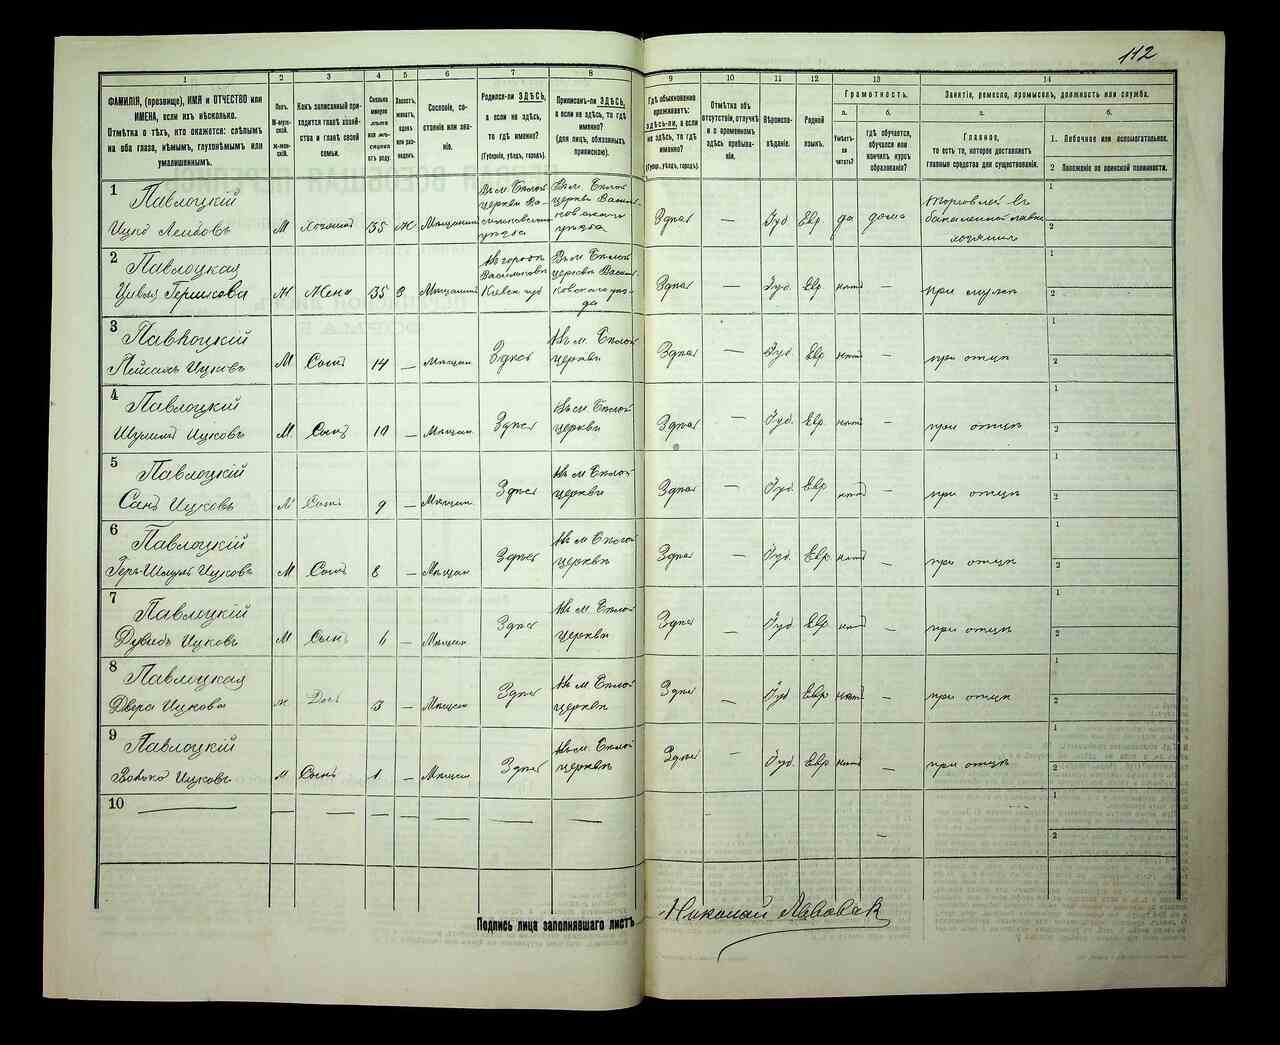 112
1
2
3
4
5
6
7
8
9
10
11
12
13
14
ФАМИЛІЯ, (прозвище), ИМЯ и ОТЧЕСТВО или
ИМЕНА, если ихъ нѣсколько.
Отмѣтка о тѣхъ, кто окажется: слѣпымъ
на оба глаза, нѣмымъ, глухонѣмымъ или
умалишеннымъ.
Полъ.
М-мужской.
Ж-женскій.
Какъ записанный приходится
главѣ хозяйства
и главѣ своей
семьи.
Сколько
минуло
лѣтъ
отъ роду.
Холостъ,
женатъ,
вдовъ
или разведенъ.
Сословіе, состояніе
или званіе.
Родился-ли ЗДѢСЬ,
а если не здѣсь,
то гдѣ именно?
(Губернія, уѣздъ, городъ).
Приписанъ-ли ЗДѢСЬ,
а если не здѣсь, то гдѣ
именно?
(для лицъ, обязанныхъ
припискою).
Гдѣ обыкновенно
проживаетъ:
здѣсь-ли, а если
не здѣсь, то гдѣ
именно?
(Губер., уѣздъ, городъ).
Отмѣтка объ
отсутствіи, отлучкѣ
и о временномъ
здѣсь пребываніи.
Вѣроисповѣданіе.
Родной
языкъ.
Грамотность.
а.
Умѣетъ-ли
читать?
б.
гдѣ обучается,
обучался или
кончилъ курсъ
образованія?
Занятіе, ремесло, промыселъ, должность или служба.
а.
Главное,
то есть то, которое доставляетъ
главныя средства для существованія.
б.
1. Побочное или вспомогательное.
2 Положеніе по воинской повинности.
1 Павлоцкій
Ицко Лейбовъ М Хозяинъ 35 Ж Мѣщанинъ Въ м. Бѣлой церкви Васильковскаго уѣзда Въ м. Бѣлой церкви Васильковскаго уѣзда Здѣсь — Іуд Евр да дома Торговля въ бакалейной лавкѣ хозяинъ 1 2
2 Павлоцкая
Цивья Гершкова Ж Жена 35 З Мѣщан Въ городѣ Васильковѣ Кіевск губ Въ м. Бѣлой церкви Васильковскаго уѣзда Здѣсь — Іуд Евр нѣтъ — при мужѣ 1 2
3 Павлоцкій
Пейсахъ Ицковъ М Сынъ 14 — Мѣщан Здѣсь Въ м. Бѣлой церкви Здѣсь — Іуд Евр нѣтъ — при отцѣ 1 2
4 Павлоцкій
Ицковъ М. Сынъ 10 — Мѣщан Здѣсь Въ м. Бѣлой церкви Здѣсь — Іуд. Евр. нѣтъ — при отцѣ 1 2
5 Павлоцкій
Ицковъ М Сынъ 9 — Мѣщан Здѣсь Въ м. Бѣлой церкви Здѣсь — Іуд. Евр нѣтъ — при отцѣ 1 2
6 Павлоцкій
Ицковъ М Сынъ 8 — Мѣщан Здѣсь Въ м. Бѣлой церкви Здѣсь — Іуд. Евр нѣтъ — при отцѣ 1 2
7 Павлоцкій
Дувидъ Ицковъ М Сынъ 6 — Мѣщан Здѣсь Въ м. Бѣлой церкви Здѣсь — Іуд Евр. нѣтъ — при отцѣ 1 2
8 Павлоцкая
Двера Ицкова ж Доч 3 — Мѣщан Здѣсь Въ м. Бѣлой церкви Здѣсь — Іуд Евр нѣтъ — при отцѣ 1 2
9 Павлоцкій
Ицковъ М Сынъ 1 — Мѣщан Здѣсь Въ м. Бѣлой церкви Здѣсь — Іуд. Евр нѣтъ — при отцѣ 1 2
10 — — — — — — — — 1 2
Подпись лица заполнявшаго листъ
Николай